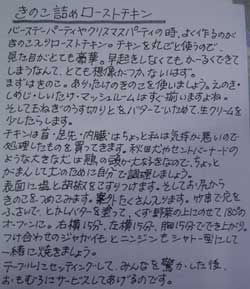 きのこ詰めローストチキン
バースデーパーティやクリスマスパーティの時、よく作るのが
きのこ入りローストチキン。チキンを丸ごと使うので、
見た目がとても豪華。早起きしなくてもかーるくできて
しまうなんて、とても想像がつかないはず。
まずはきのこ。ありったけのきのこを使いましょう。えのき・
しめじ・しいたけ・マッシュルームはすぐ揃いますよね。
そして玉ねぎのうす切りとをバターでいためて、生クリームを
少したらします。
チキンは首・足先・内臓はちょっと私は気持が悪いので
処理したものを買ってきます。秋田犬かセントバーナードの
ような大きな犬は鶏の頭が大好きなので、ちょっと
がまんして犬のために自分で調理しましょう。
表面に塩と胡椒をこすりつけます。そしてお尻から
きのこをつめこみます。案外たくさん入ります。竹串で尻を
ふさいで、とかしバターを塗って、くず野菜の上にのせて、180°の
オーブンに。右横15分、左横15分、胸15分でできあがり。
つけ合わせのジャガイモとニンジンもシャトー型にして
一緒に焼きましょう。
テーブルにセッティングして、みんなを驚かした後、
おもむろにサービスしてあげるのです。